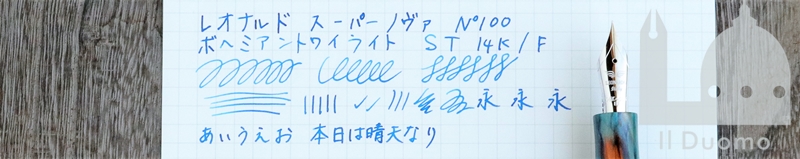 レオナルド スーパーノヴァ Nº100
ボヘミアントワイライト ST 14K/F
永 永 永
あいうえお 本日は晴天なり
Il Duomo